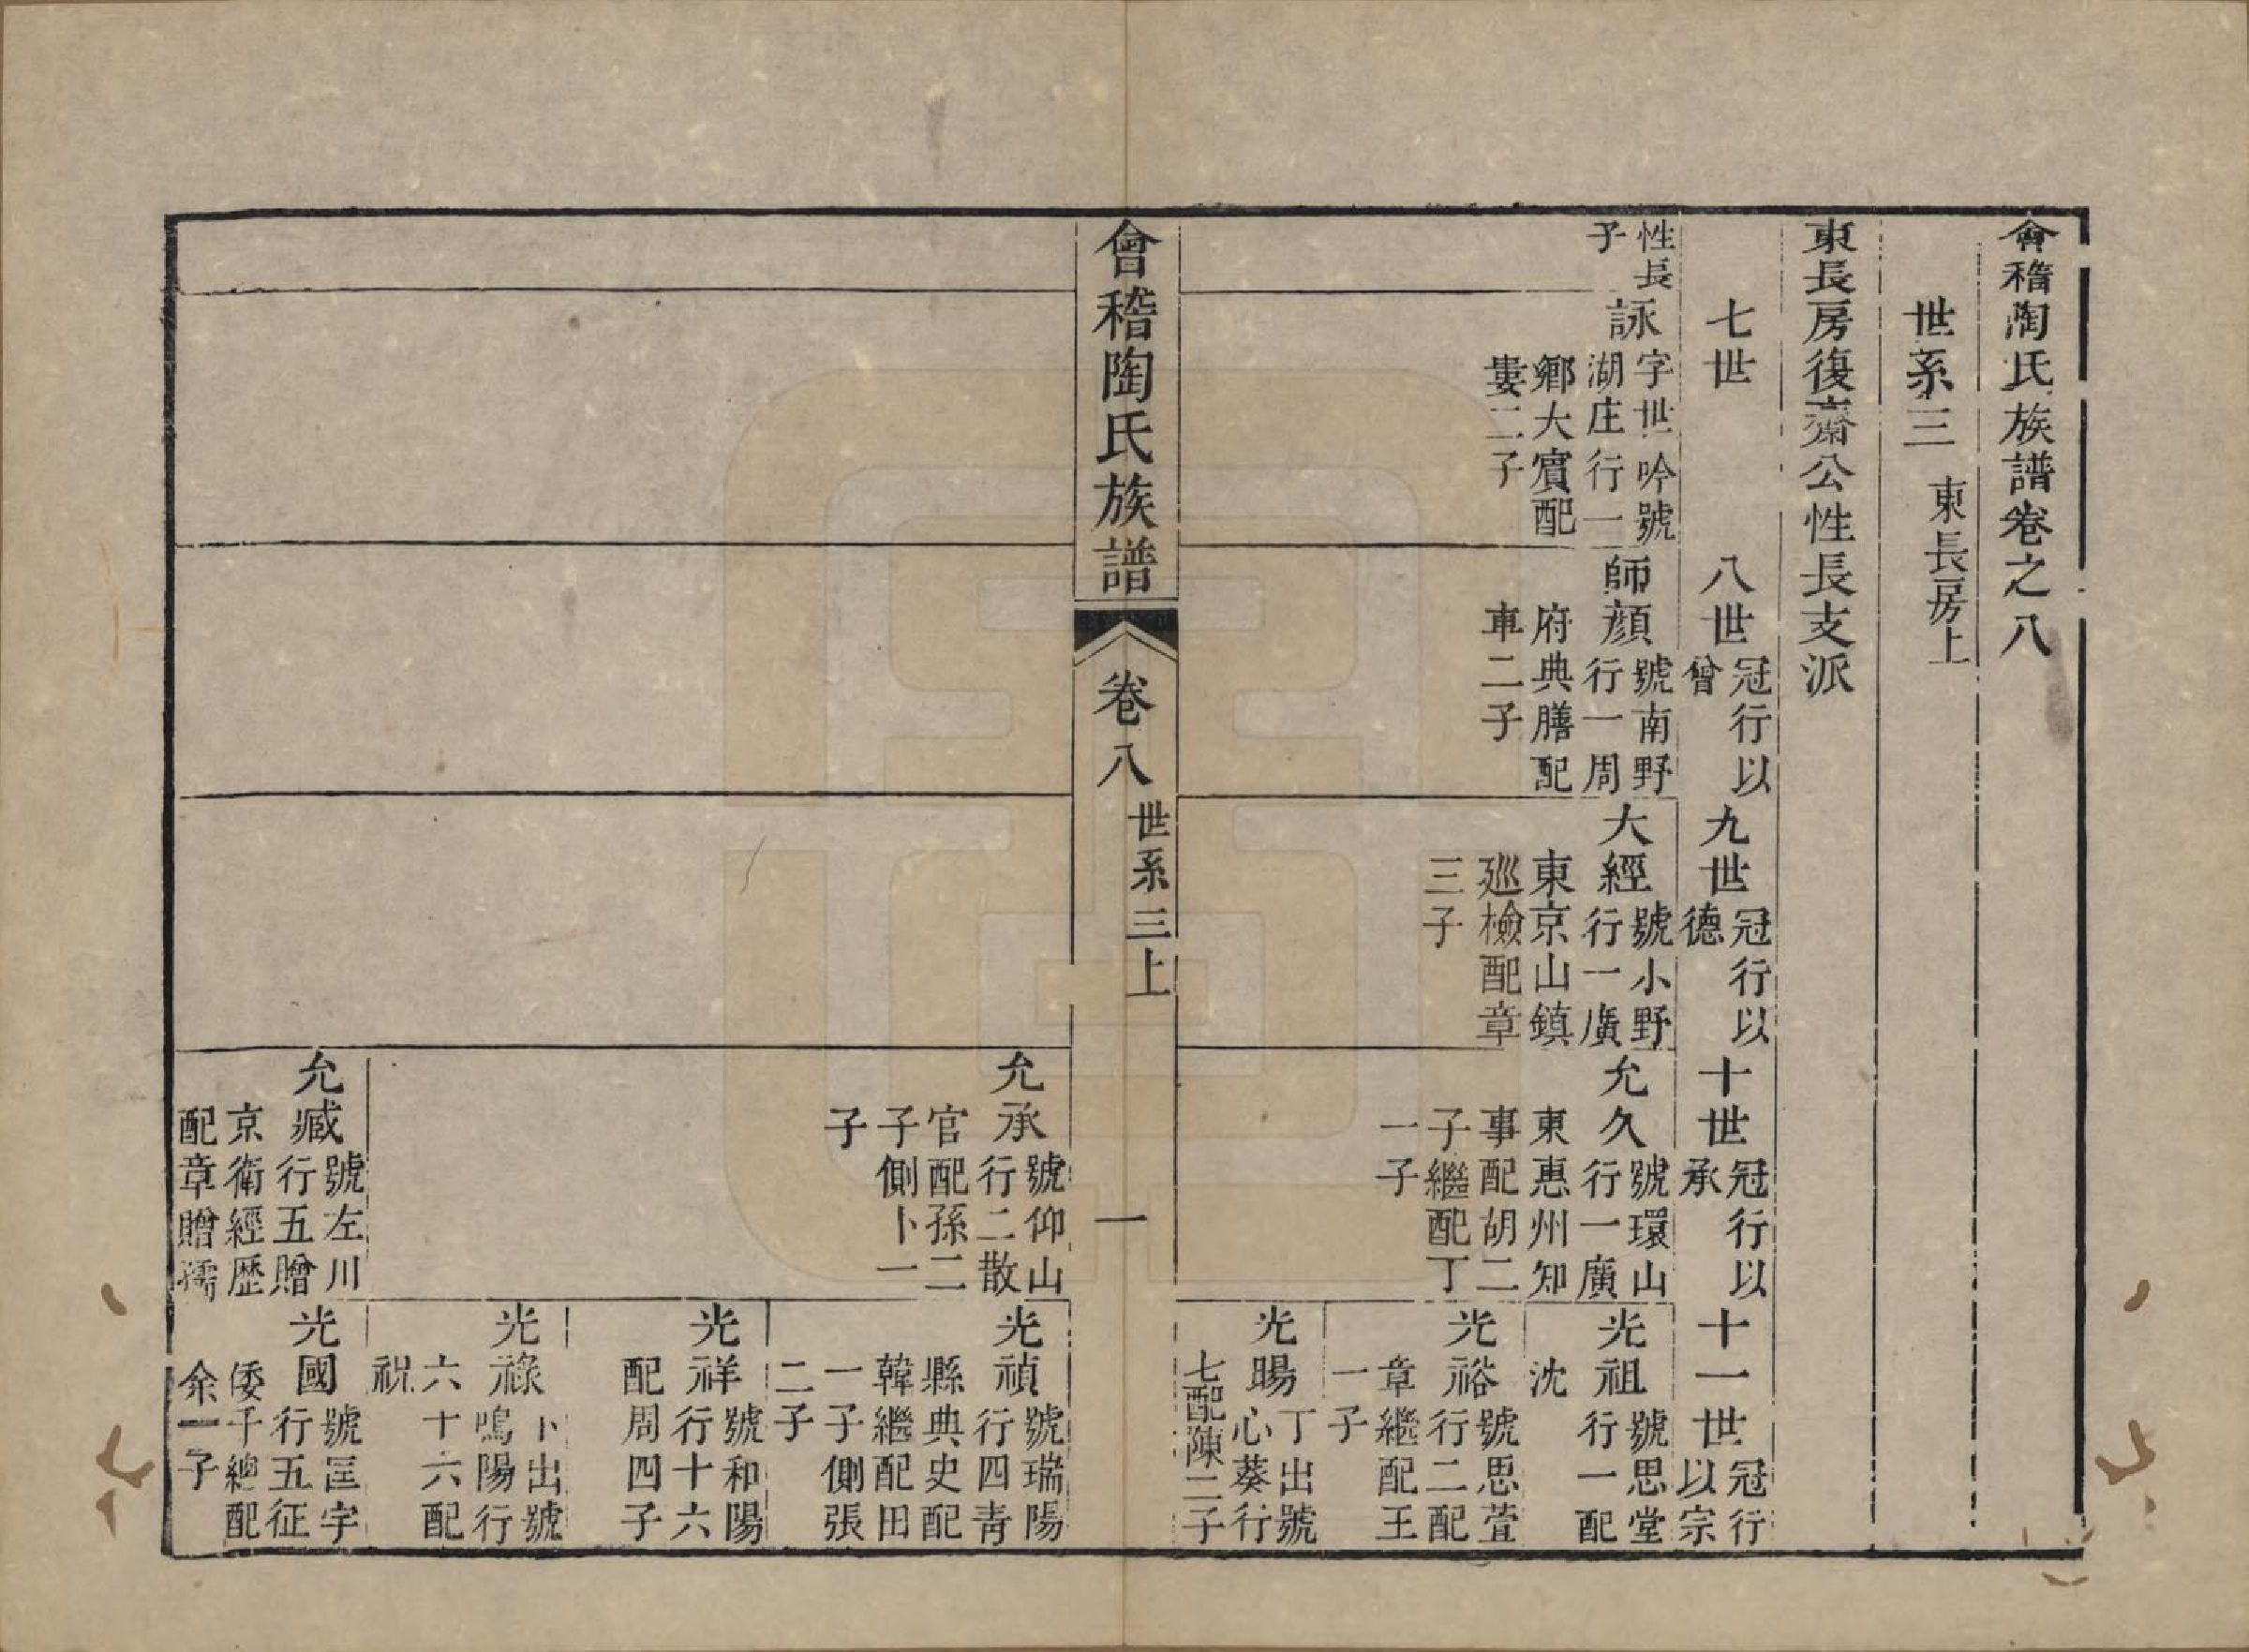 會稽陶氏族譜卷之八
世系三 東長房上
東長房復齋公性長支派
七世
八世 冠行以曾
九世 冠行以德
十世 冠行以承
十一世 冠行以宗
性長子
詠 字世吟號湖庄行一鄉大賓配婁二子
師顏 號南野行一周府典膳配車二子
大經 號小野行一廣東京山鎮廵檢配章三子
允久 號環山行一廣東惠州知事配胡二子繼配丁一子
光祖 號思堂行一配沈
光裕 號思萱行二配章繼配王一子
光暘 丁出號心葵行七配陳二子
會稽陶氏族譜 卷八 世系三上 一
允承 號仰山行二散官配孫二子側卜一子
光禎 號瑞陽行四青縣典史配韓繼配田一子側張二子
光祥 號和陽行十六配周四子
光祿 卜出號鳴陽行六十六配祝
允臧 號左川行五贈京衛經歷配章贈孺
光國 號匡宇行五征倭千總配余一子